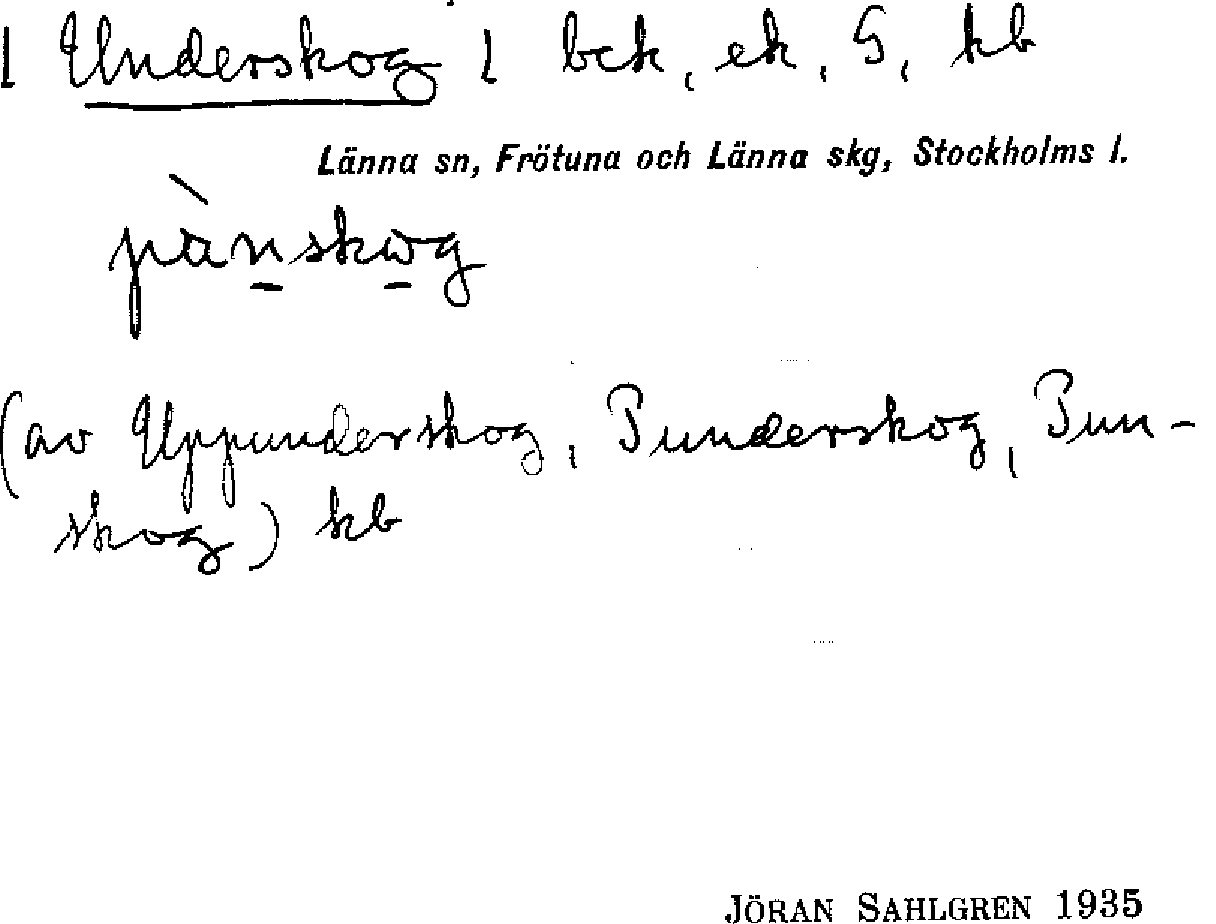 [ Underskog ] bck, ek, G, kb
Länna sn, Frötuna och Länna skg, Stockholms l.
pànskωg
(av Uppunderskog, Punderskog, Pun-
skog) kb
JÖRAN SAHLGREN 1935